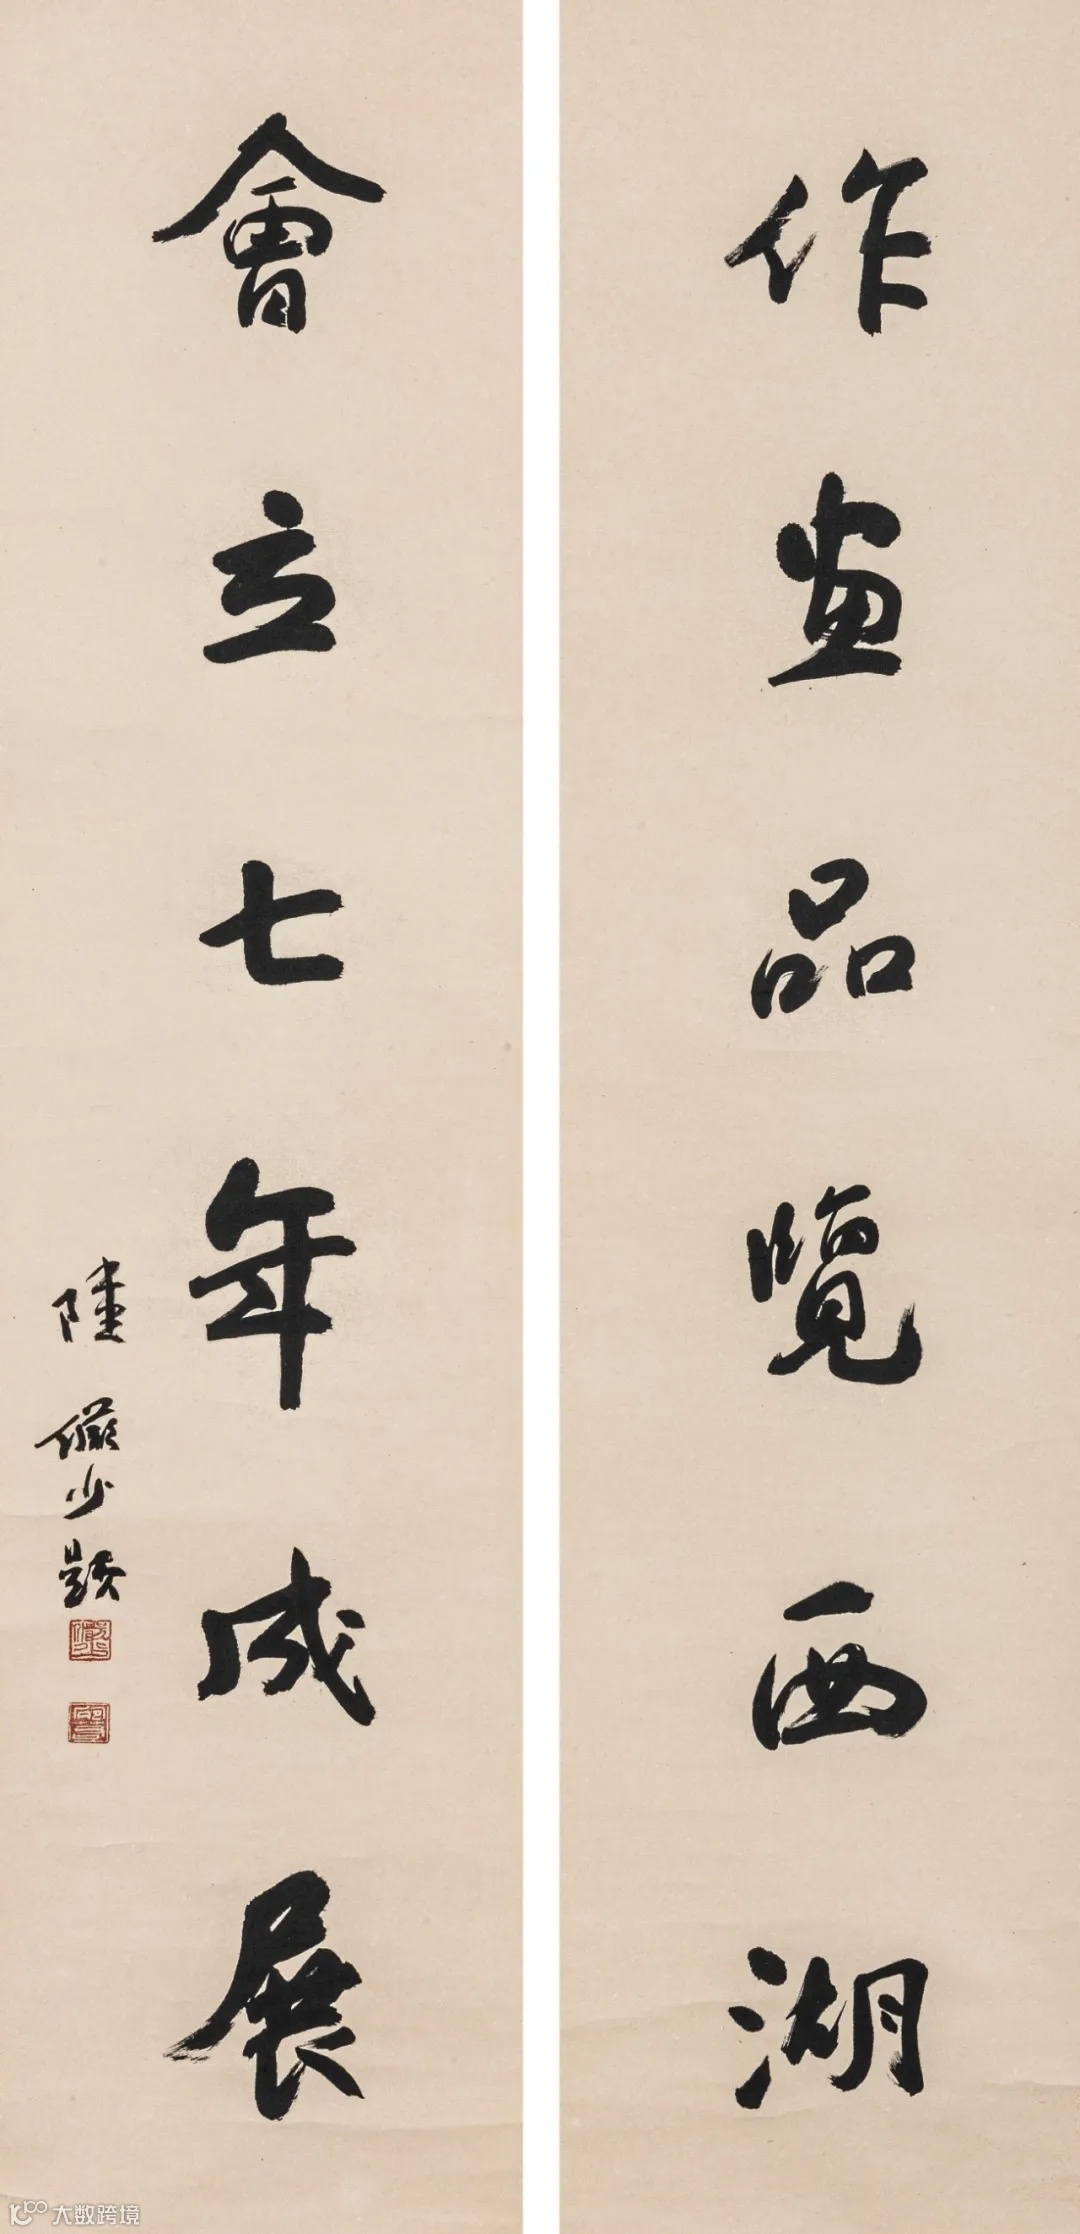 作画品覽西湖
會立七年成展
陸儼少題
大数跨境